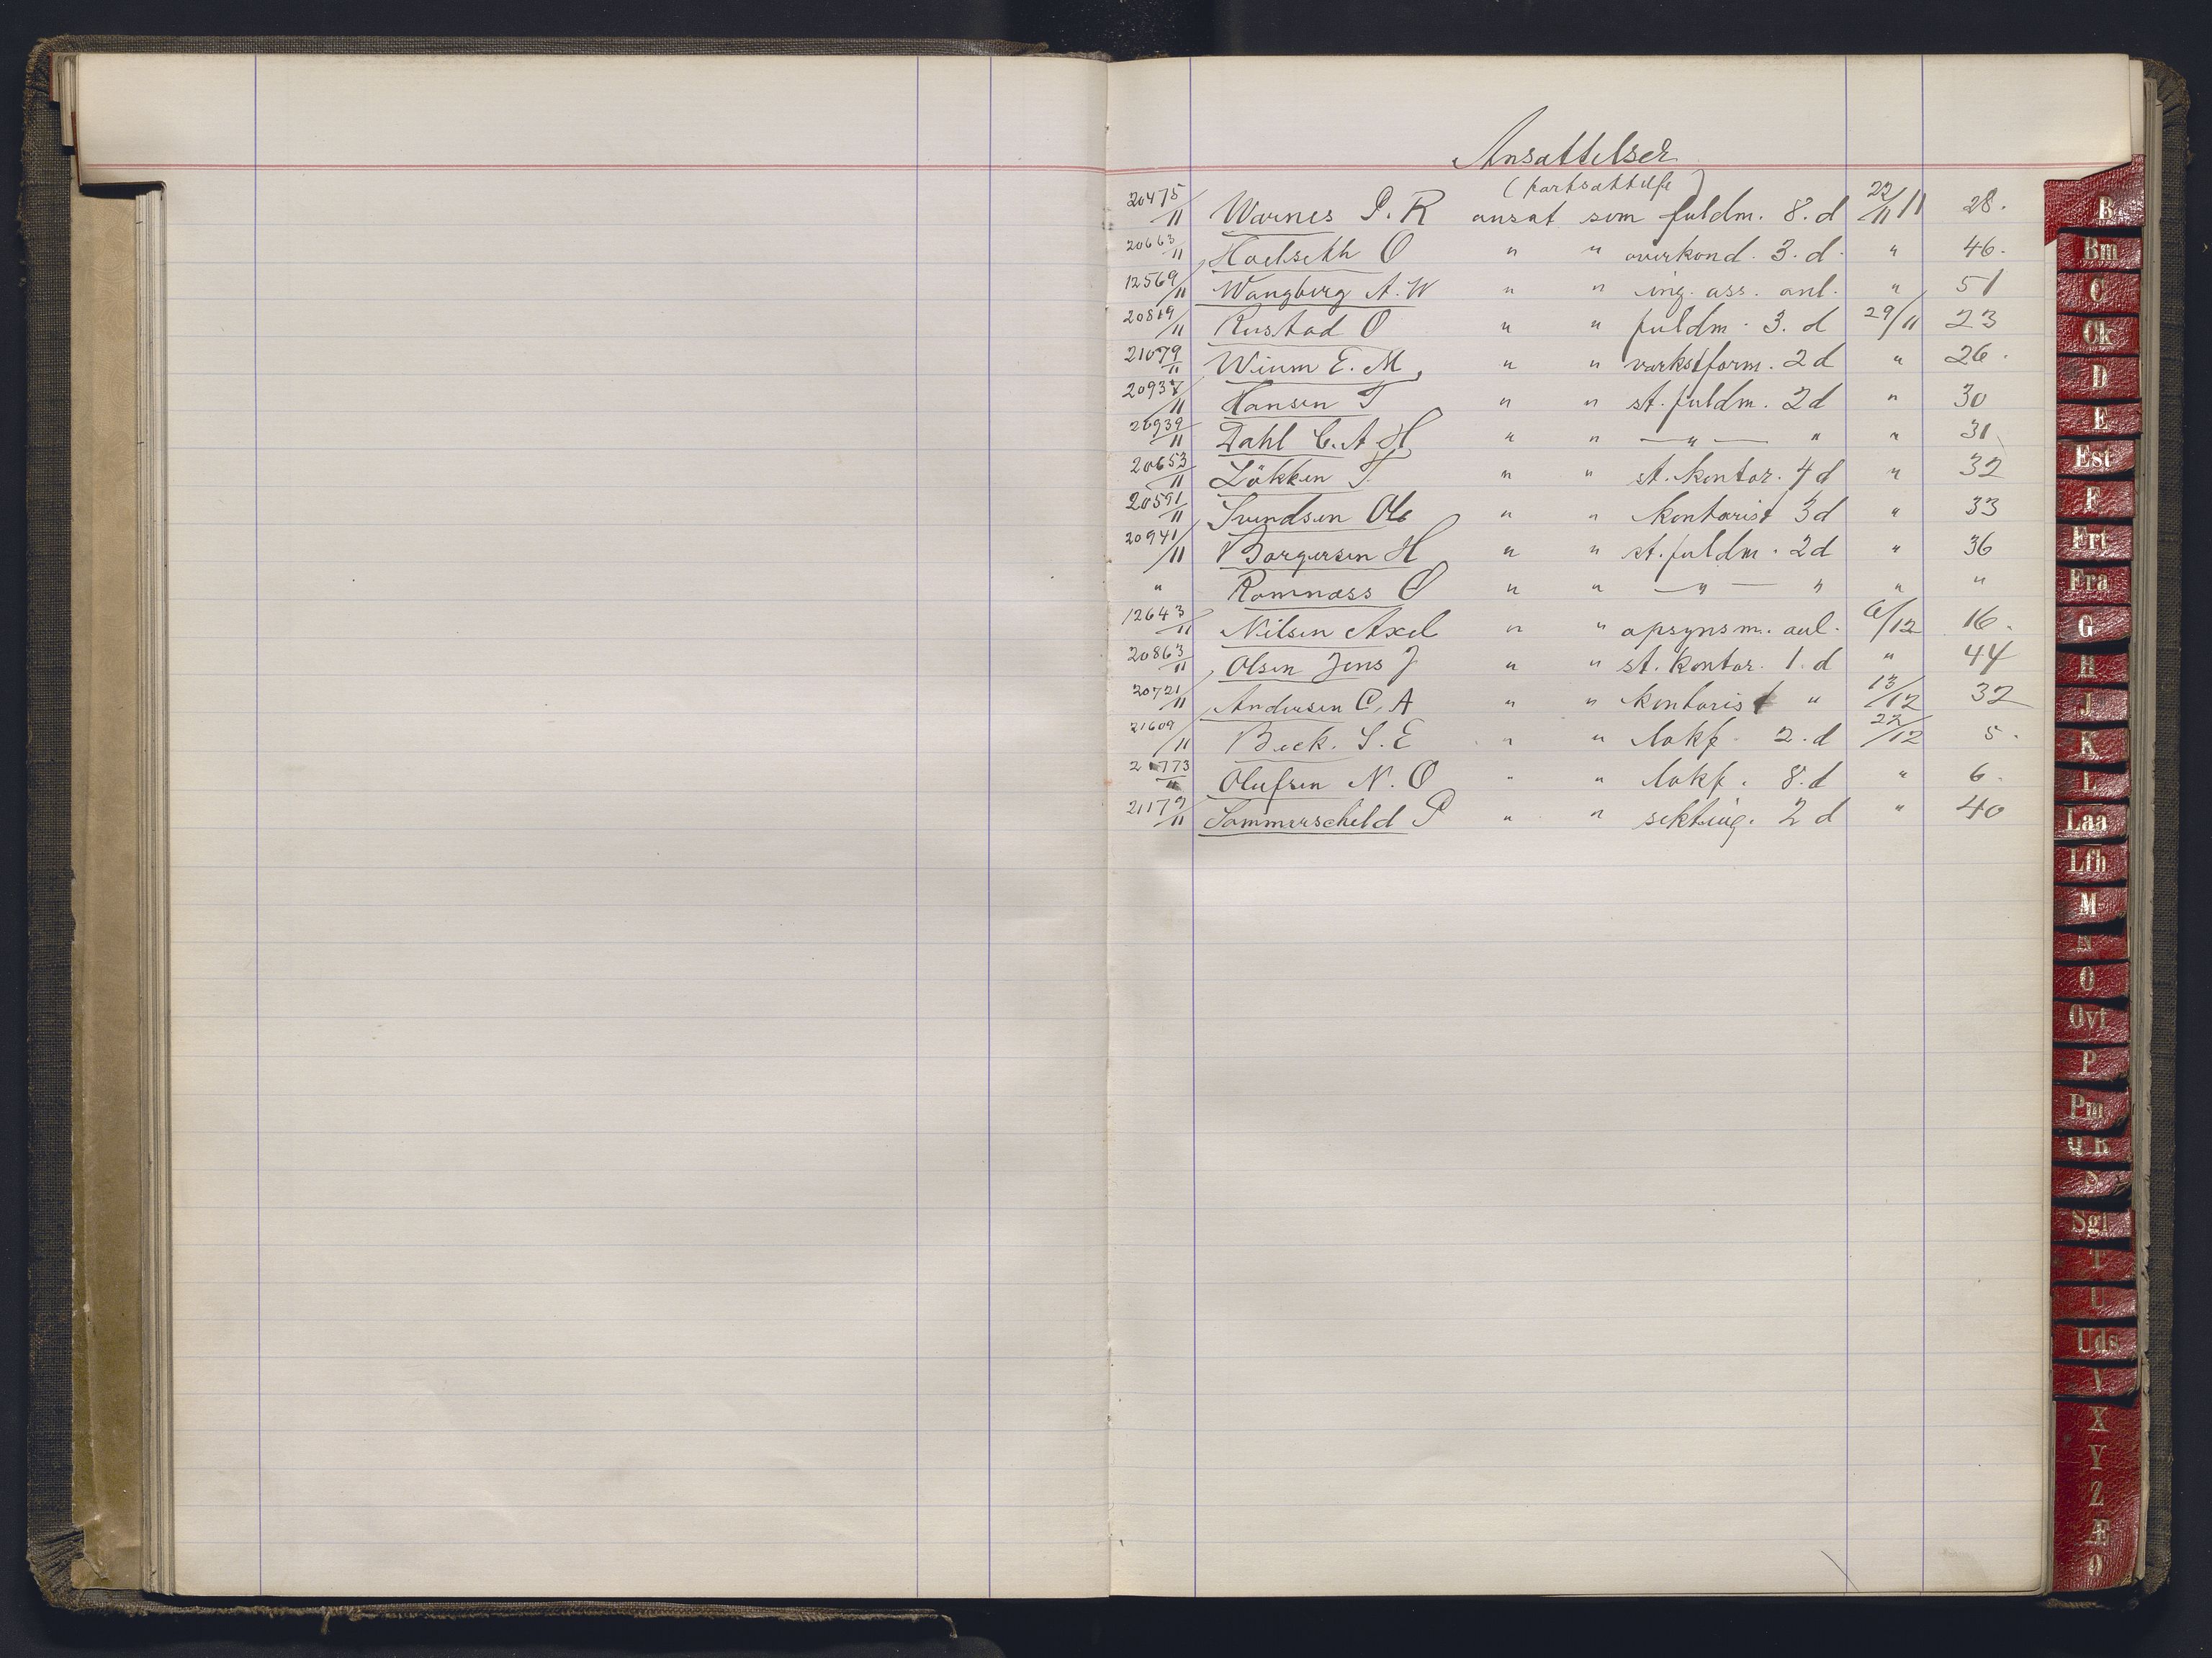 Ansættelser
(fortsættelse)
20475/11 Warnes P. R ansat som fuldm. 8. d 22/11 11 28.
20663/11 Hoelseth O " " overkond. 3. d. " 46.
12569/11 Wangberg A. W " " ing. ass. anl. " 51
20819/11 Rustad O " " fuldm. 3. d 29/11 23
21079/11 Wium E. M. " " verkstform. 2 d " 26.
20937/11 Hansen T " " st. fuldm. 2 d " 30
20939/11 Dahl C. A H " " — " — " " 31
20653/11 Løkken T. " " st. kontor. 4 d " 32
20591/11 Svendsen Ole " " kontorist 3 d " 33
20941/11 Borgersen H " " st. fuldm. 2 d " 36
" Romnæss O " " — " — " " "
12643/11 Nilsen Axel " " opsynsm. anl. 6/12 16.
20863/11 Olsen Jens J " " st. kontor. 1. d " 44
20721/11 Andersen C. A " " kontorist " 13/12 32
21609/11 Beck. S. E " " lokf. 2. d 22/12 5.
21773/11 Olufsen N. O " " lokf. 8. d " 6.
21179/11 Sommerscheld P " " sekting. 2 d " 40
B
Bm
C
Ck
D
E
Est
F
Frt
Fra
G
H
J
K
L
Laa
Lfh
M
N
O
Ovt
P
Pm
Q R
S
Sgl
T
U
Uds
V
X
Y
Z
Æ
Ø